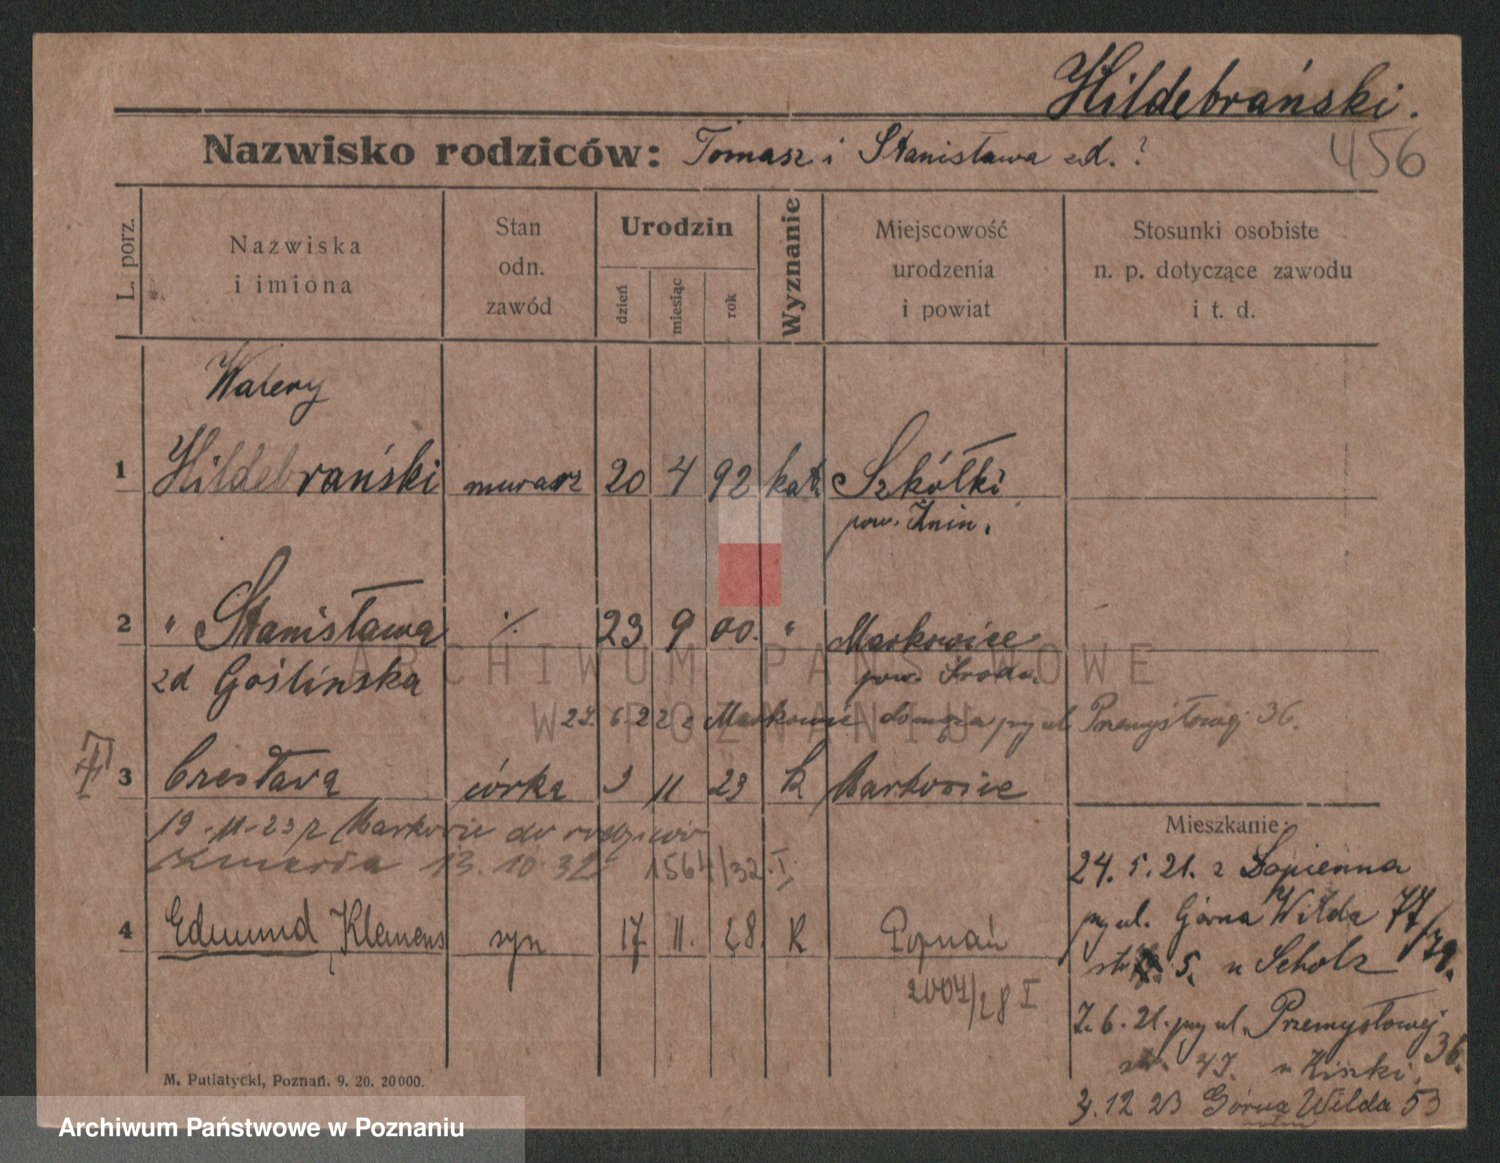 Hildebrański.
456
Nazwisko rodziców: Tomasz i Stanisława zd. ?
L. porz.
Nazwiska
i imiona
Stan
odn.
zawód
Urodzin
dzień
miesiąc
rok
Wyznanie
Miejscowość
urodzenia
i powiat
Stosunki osobiste
n. p. dotyczące zawodu
i t. d.
Walery
1 Hildebrański murarz 20 4 92 kat. Szkółki
pow. Żnin.
2 " Stanisława ./. 23 9 00. " Markowice
zd Goślinska pow. Środa.
27. 6. 22 z Markowic do męża przy ul. Przemysłowej 36.
3 Czesława córka 9 11 23 k Markowice
19-11-23 z Markowic do rodziców
zmarła 13. 10. 32 1564/32. I.
4 Edmund Klemens syn 17 11. 28. k Poznań
2007/28 I
Mieszkanie:
24. 5. 21. z Sapienna
przy ul. Górna Wilda 77/79.
5. u Scholz
7. 6. 21. przy ul. Przemysłowej 36.
u Kiszki.
3. 12 23 Górna Wilda 53
M. Putiatycki, Poznań. 9. 20. 20000.
ARCHIWUM PAŃSTWOWE
W POZNANIU
Archiwum Państwowe w Poznaniu